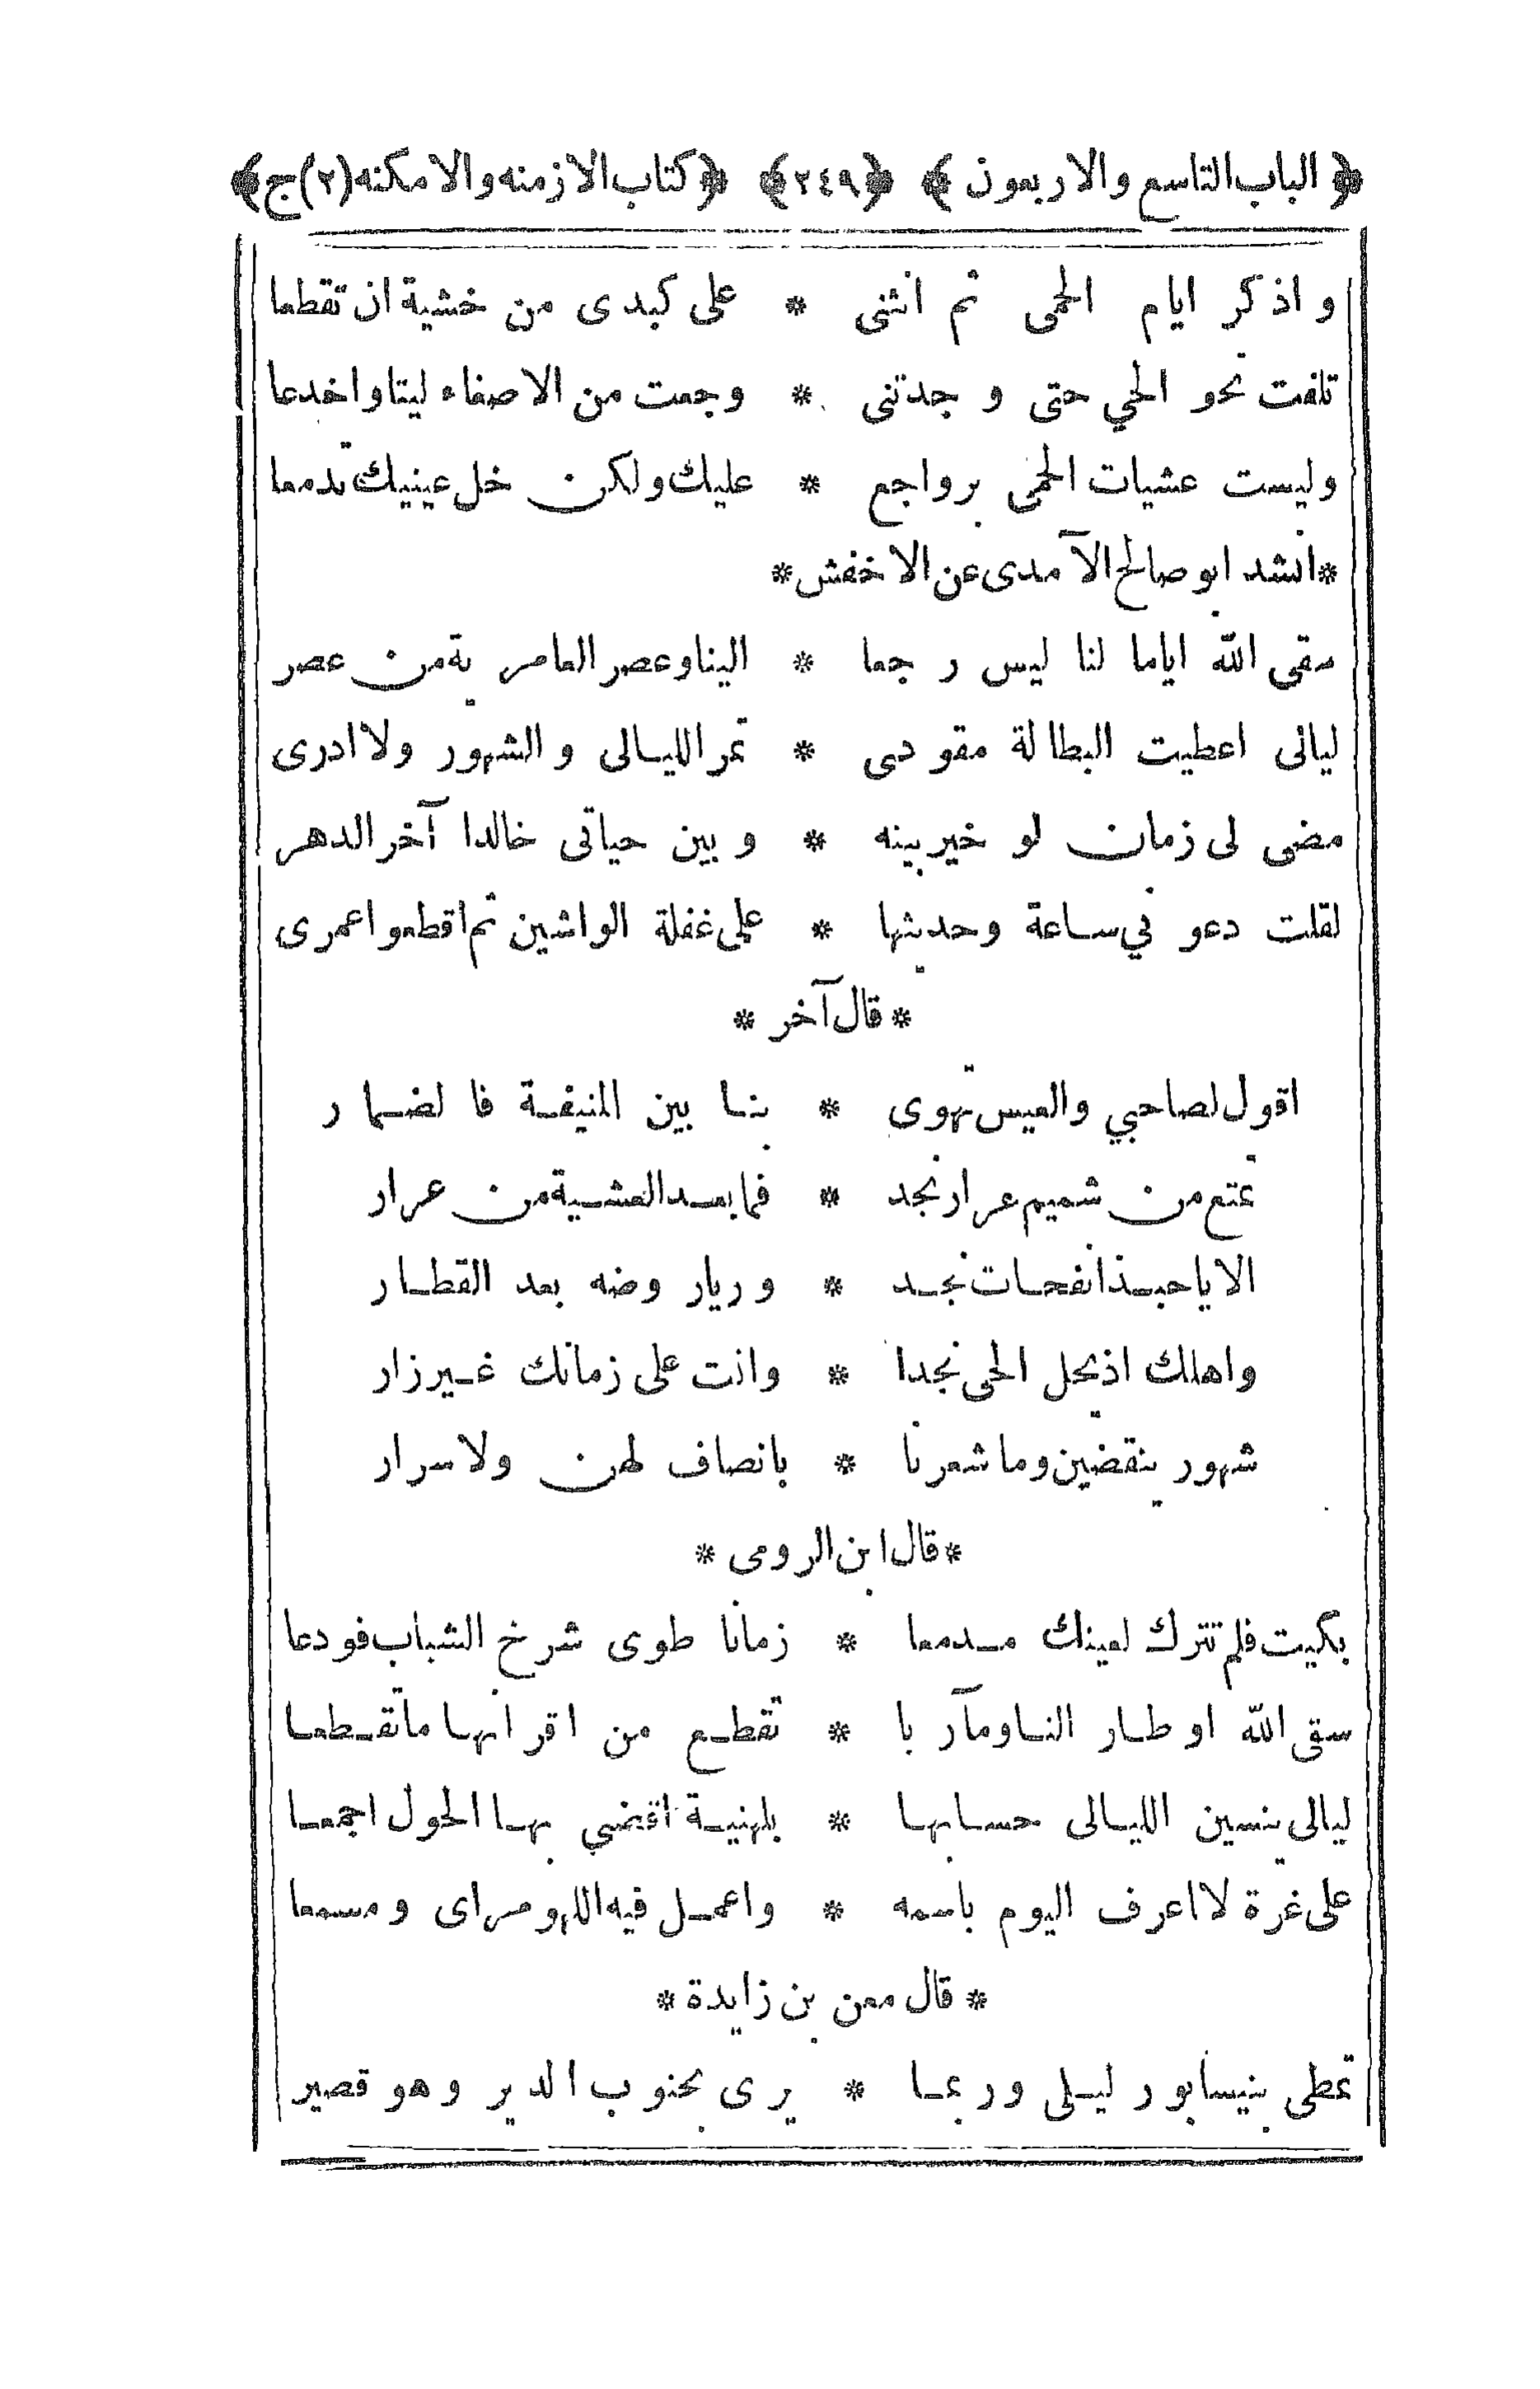 ﴿الباب التاسع والاربعون﴾ ﴿٢٤٩﴾ ﴿كتاب الازمنه والامكنه(٢)ج﴾
واذكر ايام الحمى ثم انثنى * على كبدى من خشية ان تقطعا
تلفت نحو الحي حتى وجدتنى * وجعت من الاصغاء ليتا واخدعا
وليست عشيات الحمى برواجع * عليك ولكن خل عينيك تدمعا
*انشد ابو صالح الآمدى عن الاخفش*
سقى الله اياما لنا ليس رجعا * الينا وعصر العامرية من عصر
ليالى اعطيت البطالة مقودى * تمر الليالى والشهور ولا ادرى
مضى لى زمان لو خير بينه * وبين حياتى خالدا آخر الدهر
لقلت دعونى ساعة وحديثها * على غفلة الواشين ثم اقطعوا عمرى
*قال آخر*
اقول لصاحبي والعيس تهوى * بنا بين المنيفة فالضمار
تمتع من شميم عرار نجد * فما بعد العشية من عرار
الا ياحبذا نفحات نجد * وريا روضه بعد القطار
واهلك اذ يحل الحى نجدا * وانت على زمانك غير زار
شهور ينقضين وما شعرنا * بانصاف لهن ولا سرار
*قال ابن الرومى*
بكيت فلم تترك لعينك مدمعا * زمانا طوى شرخ الشباب فودعا
سقى الله اوطارا لنا ومآربا * تقطع من اقرانها ما تقطعا
ليالى ينسين الليالى حسابها * بلهنية اقضي بها الحول اجمعا
على غرة لا اعرف اليوم باسمه * واعمل فيه اللهو مراى ومسمعا
*قال معن بن زايدة*
تمطى بنيسابور ليلى وربما * يرى بجنوب الدير وهو قصير